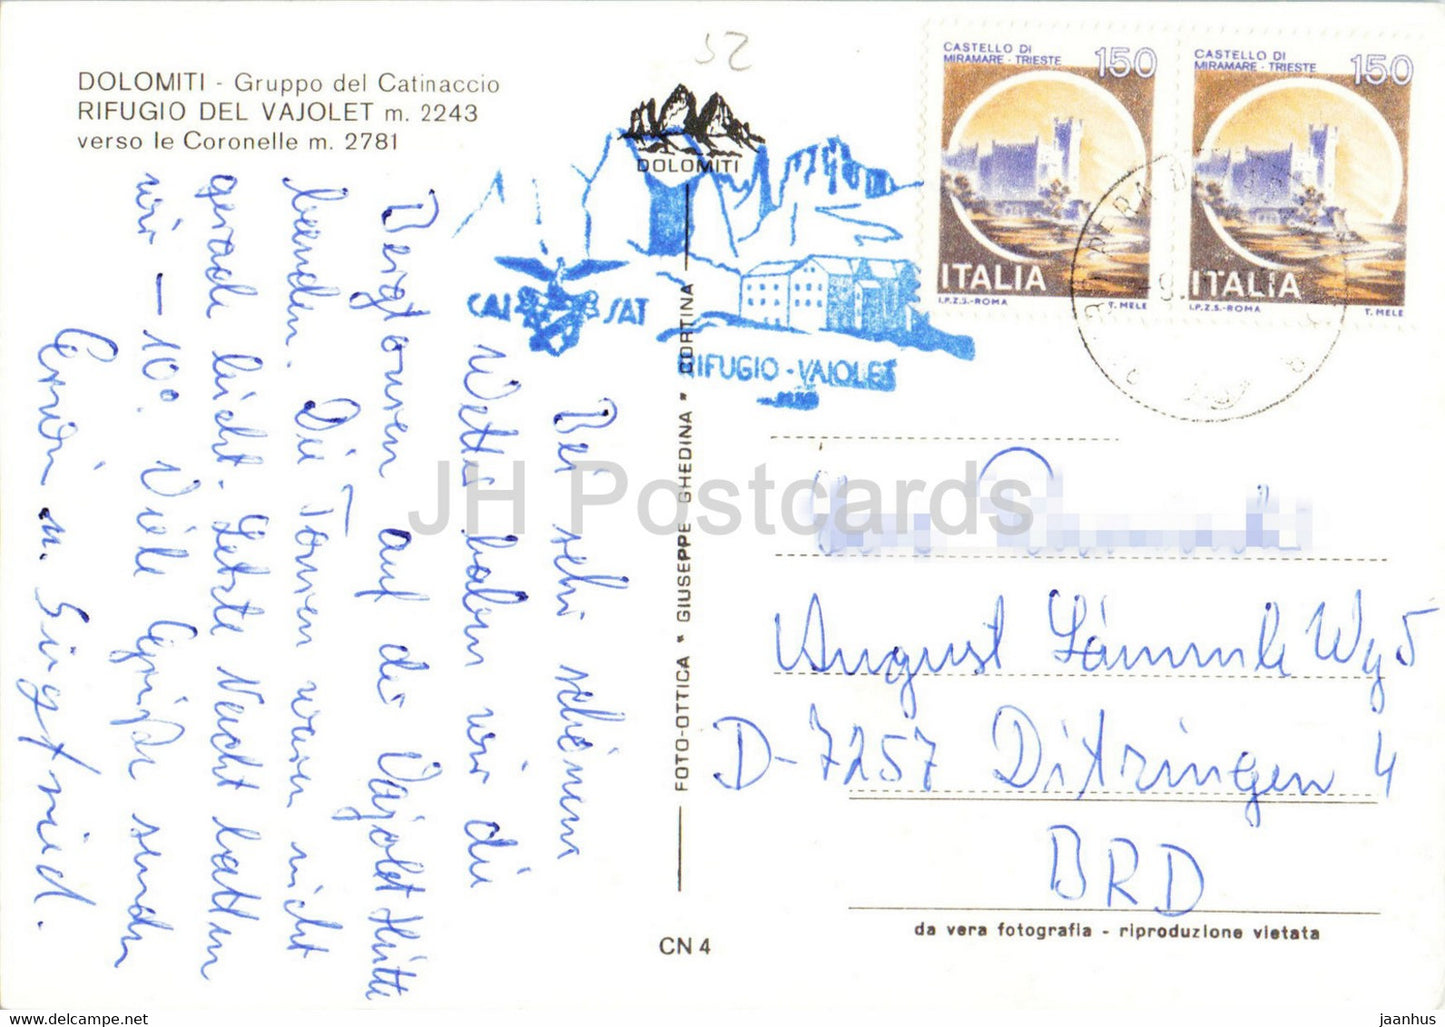 DOLOMITI - Gruppo del Catinaccio
RIFUGIO DEL VAJOLET m. 2243
verso le Coronelle m. 2781
52
DOLOMITI
CAI SAT
RIFUGIO - VAJOLET
CASTELLO DI
MIRAMARE - TRIESTE
150
ITALIA
I.P.Z.S.-ROMA
T. MELE
CASTELLO DI
MIRAMARE - TRIESTE
150
ITALIA
I.P.Z.S.-ROMA
T. MELE
Bei sehr schönem
Wetter haben wir die
Bergtouren auf die Vajolet Hütte
. Die Touren waren nicht
gerade leicht. Letzte Nacht hatten
wir - 10°. Viele Grüße senden
Erwin u. Siegfried.
FOTO-OTTICA * GIUSEPPE GHEDINA * CORTINA
August Lämmle Wg 5
D-7257 Ditzingen 4
BRD
da vera fotografia - riproduzione vietata
CN 4
JH Postcards
jaanhus
https://www.delcampe.net